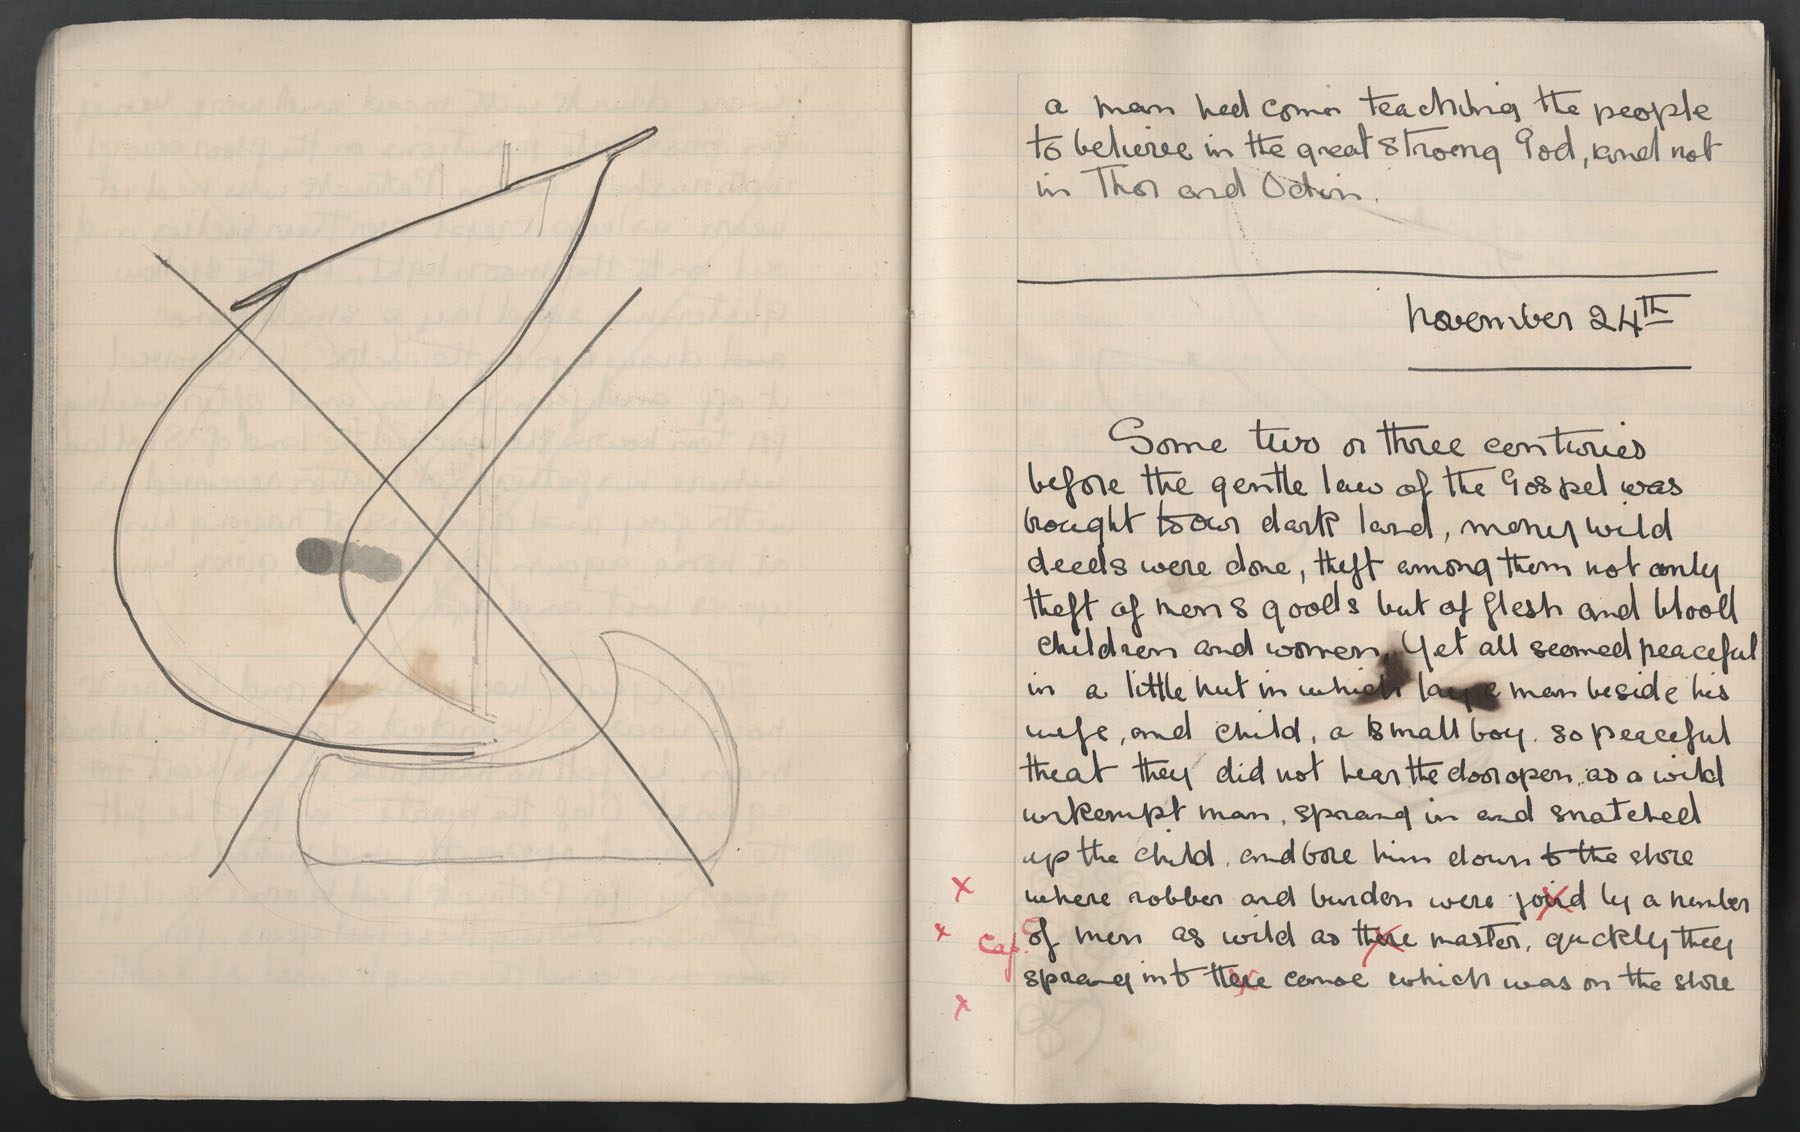 a man had come teaching the people
to believe in the great strong God, and not
in Thor and Odin.
November 24th
Some two or three centuries
before the gentle law of the Gospel was
brought to our dark land, many wild
deeds were done, theft among them not only
theft of men s goods but of flesh and blood
children and women, Yet all seemed peaceful
in a little hut in which lay a man beside his
wife, and child, a small boy. so peaceful
that they did not hear the door open, as a wild
unkempt man, sprang in and snatched
up the child, and bore him down to the shore
x where robber and burden were joind by a number
x Cap. of men as wild as there master, quickly they
x sprang into there canoe which was on the shore